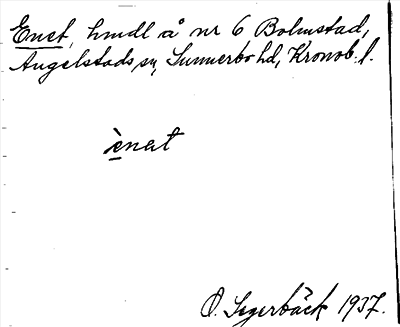 Enet, hmdl å nr 6 Bolmstad,
Angelstads sn, Sunnerbo hd, Kronob. l.
ènæt
O. Segerbäck 1937.